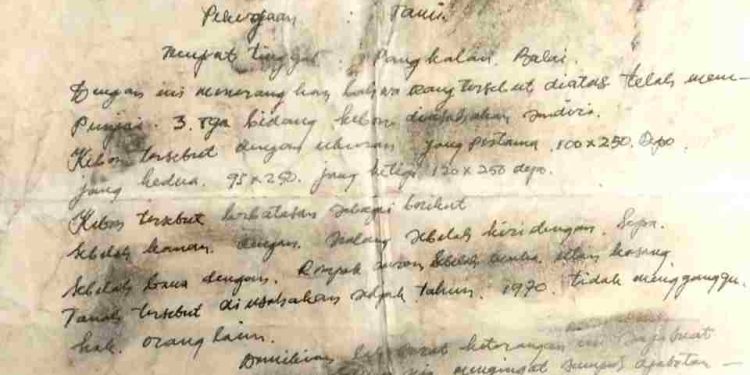 Pekerjaan : Tani.
Tempat tinggal : Pangkalan Balai.
Dengan ini menerangkan bahwa orang tersebut diatas telah mem-
punjai. 3. tiga bidang kebon diusahakan sendiri.
Kebon tersebut dengan ukuran jang pertama. 100 x 250. Depo.
jang kedua. 95 x 250. jang ketiga 120 x 250 depo.
Kebon tersebut berbatasan sebagai berikut
Sebelah kanan dengan. sebelah kiri dengan. Sepa.
Sebelah bawa dengan. sebelah utan kosong
Tanah tersebut diusahakan sedjak tahun. 1970. tidak mengganggu.
hak. orang lain.
Demikian surat keterangan ini saja buat
mengingat sumpah djabatan -